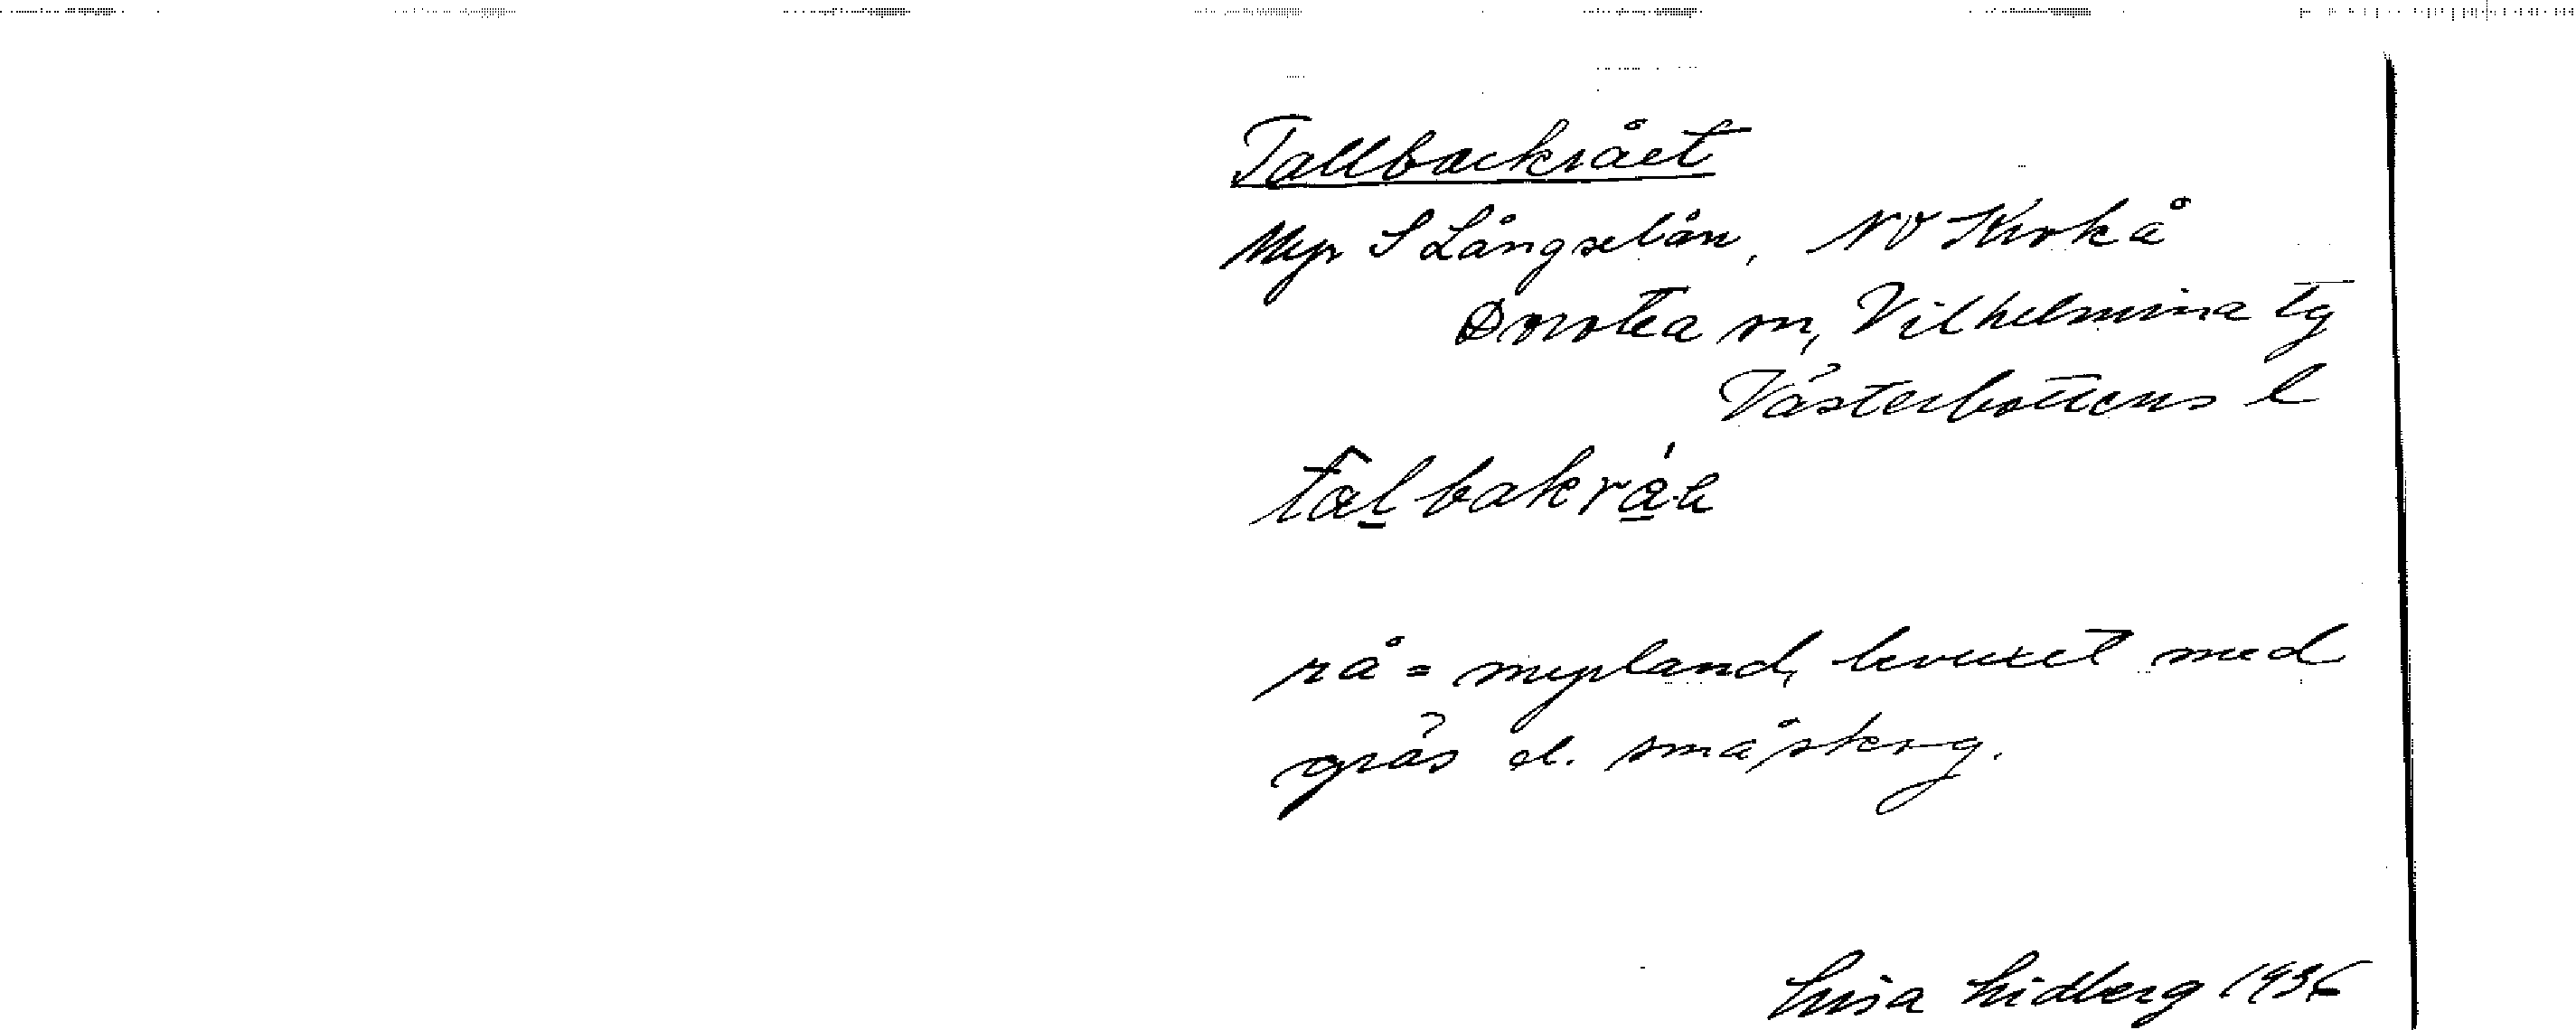 Tallbackrået
Myr S Långselån, NV Krokå
Dorotea sn, Vilhelmina tg
Västerbottens l
talbakrå·e
rå = myrland, bevuxet med
gräs el. småskog.
Lisa Lidberg 1936